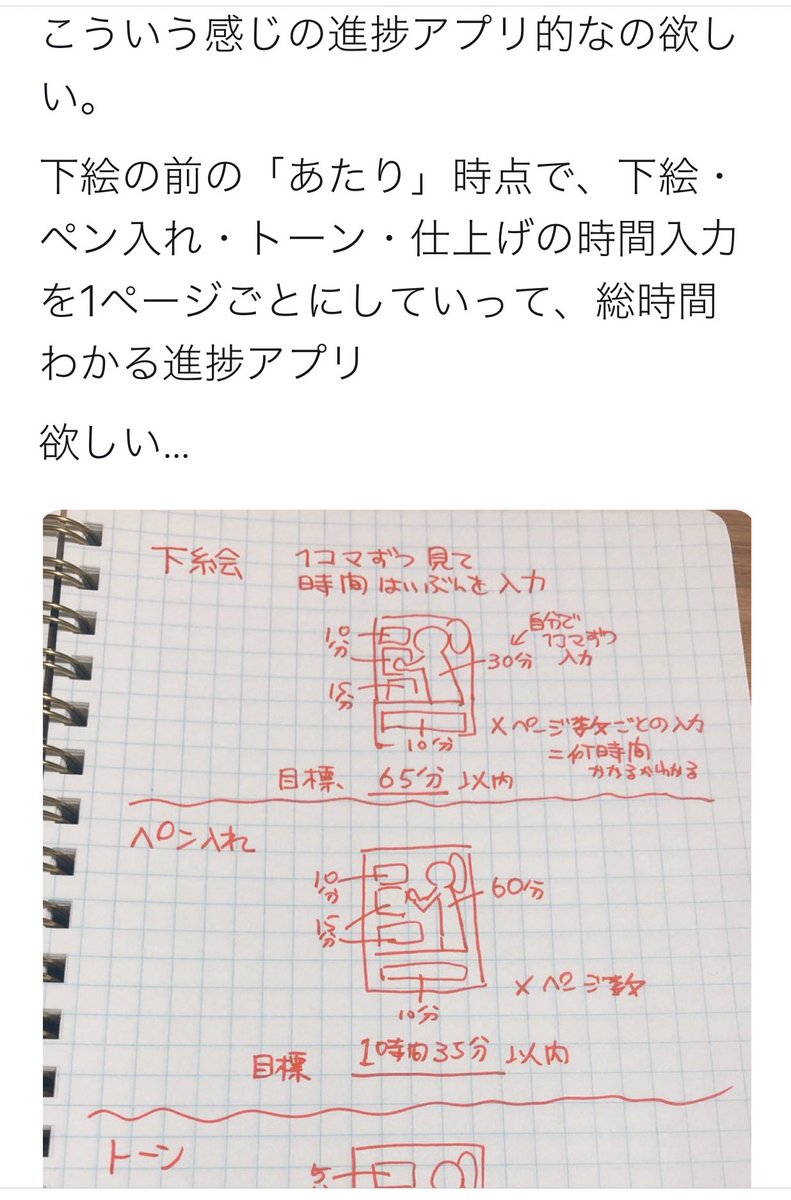 こういう感じの進捗アプリ的なの欲し
い。
下絵の前の「あたり」時点で、下絵・
ペン入れ・トーン・仕上げの時間入力
を1ページごとにしていって、総時間
わかる進捗アプリ
欲しい...
下絵
1コマずつ見て
時間はいぶんを入力
10分
15分
30分
自分で
1コマずつ
入力
10分
×ページ数ごとの入力
=何時間
かかるかわかる
目標、65分以内
ペン入れ
10分
15分
60分
10分
×ページ数
目標 1時間35分以内
トーン
5分